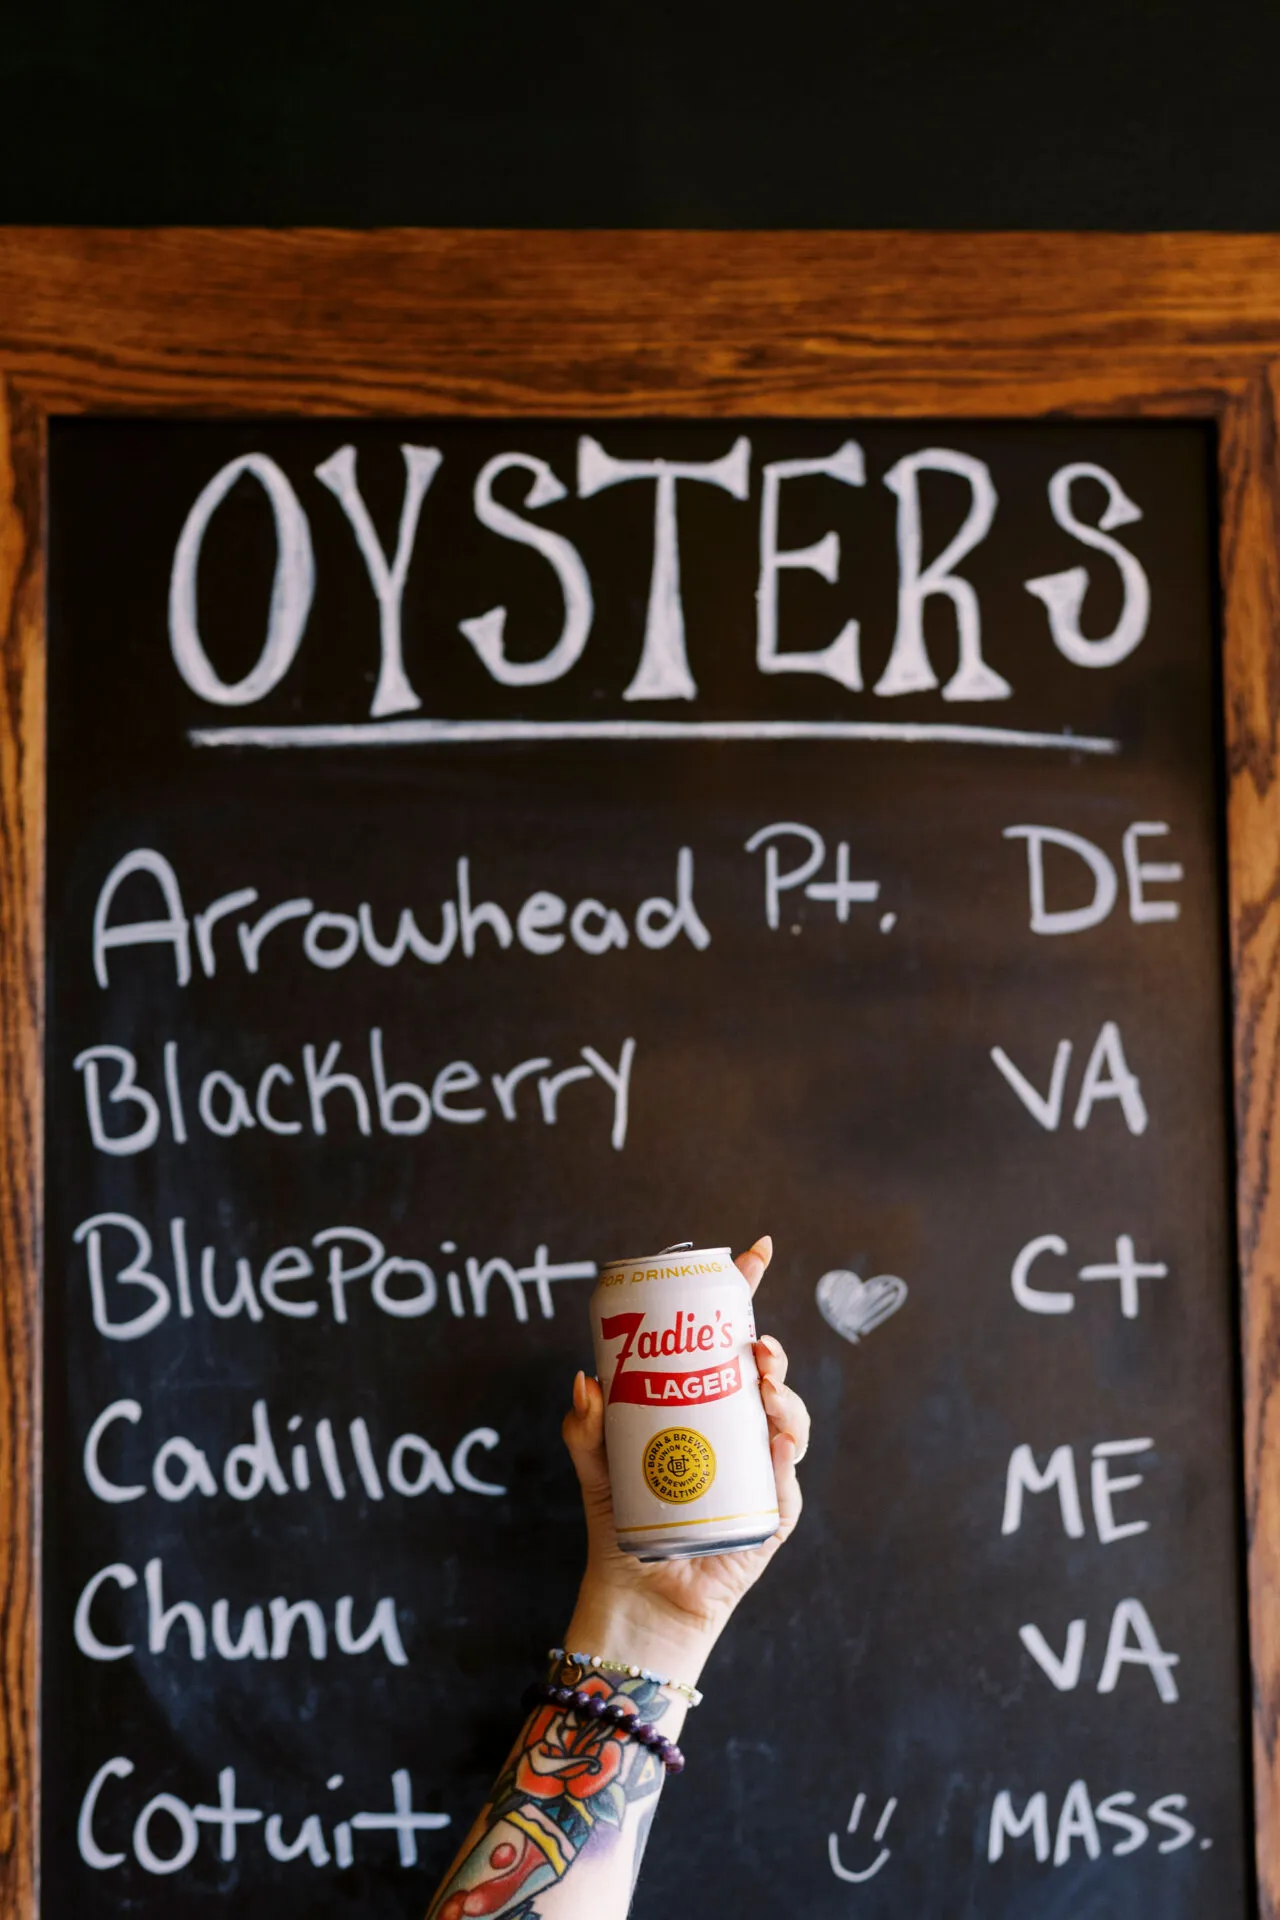 OYSTERS
Arrowhead Pt. DE
Blackberry VA
BluePoint Ct
Cadillac ME
Chunu VA
Cotuit MASS.
FOR DRINKING
Zadie's
LAGER
BORN & BREWED
BY UNION CRAFT
BREWING
IN BALTIMORE